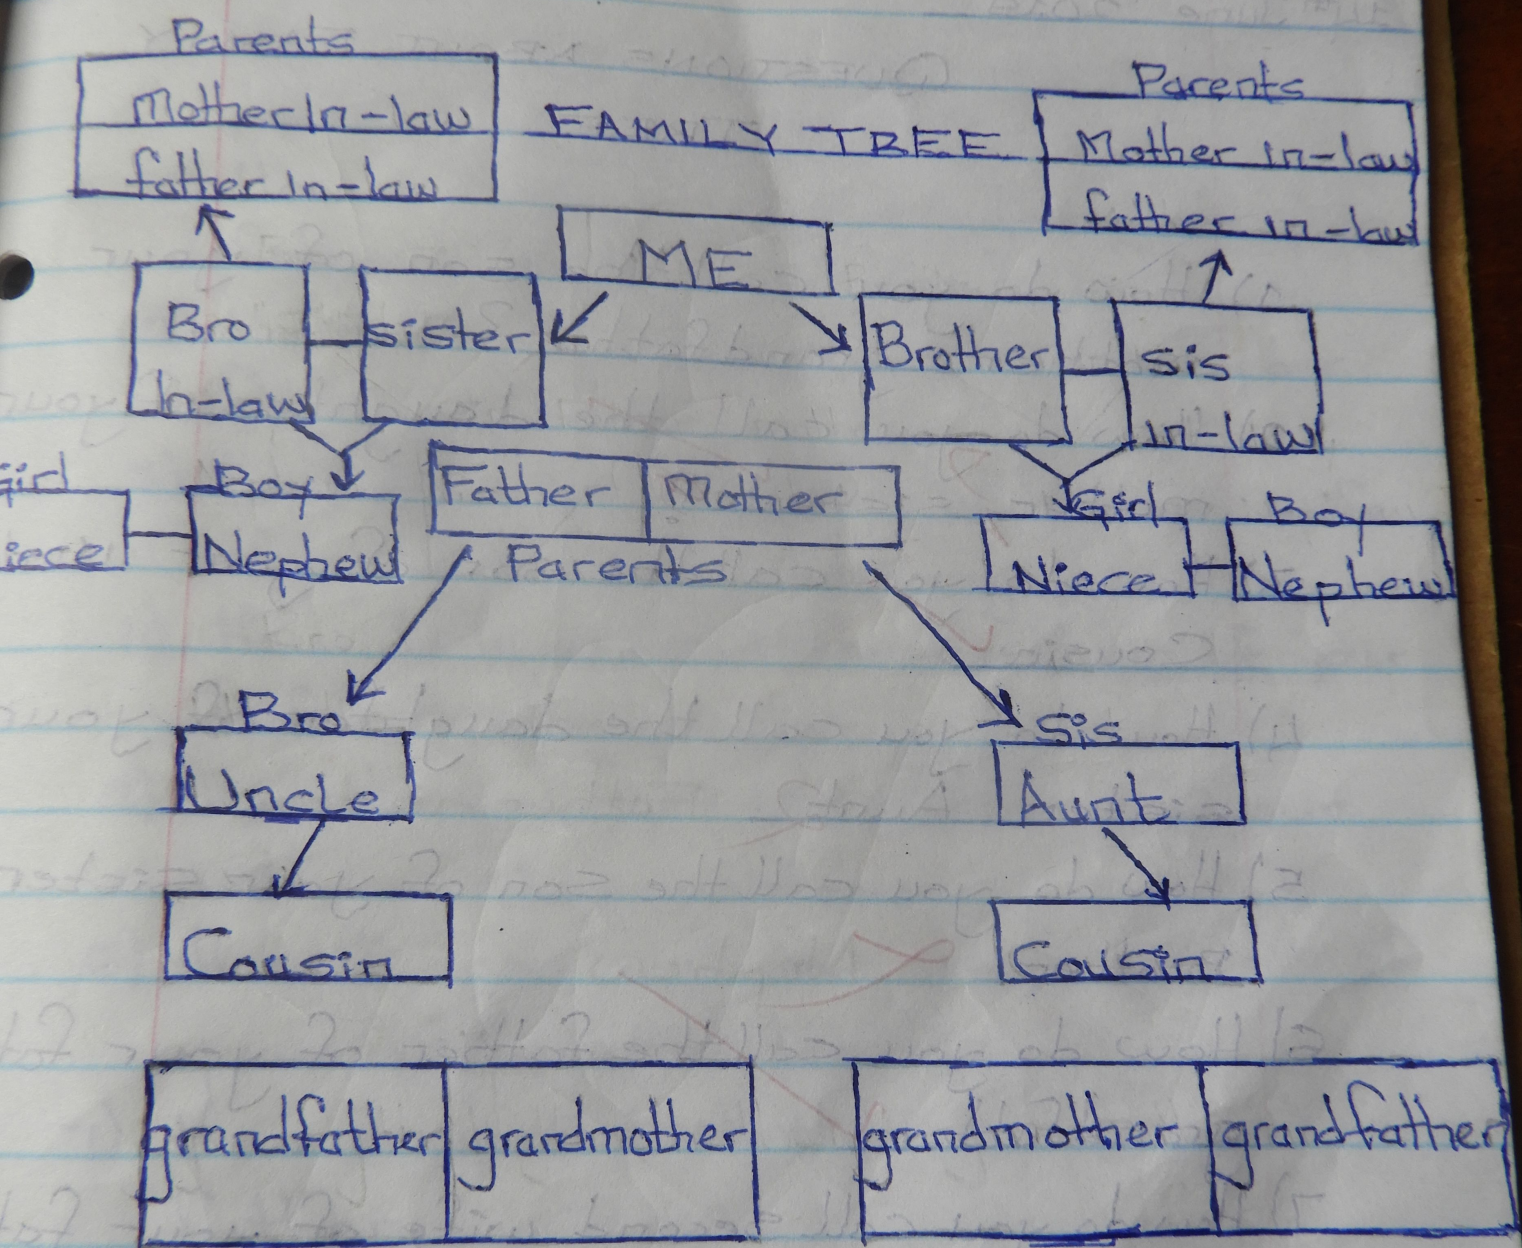 Parents
Mother In-law
father In-law
FAMILY TREE
Parents
Mother in-law
father in-law
ME
Bro
In-law
sister
Brother
sis
in-law
Boy
Nephew
Father
Mother
Parents
Girl
Niece
Boy
Nephew
Bro
Uncle
Sis
Aunt
Cousin
Cousin
grandfather
grandmother
grandmother
grandfather